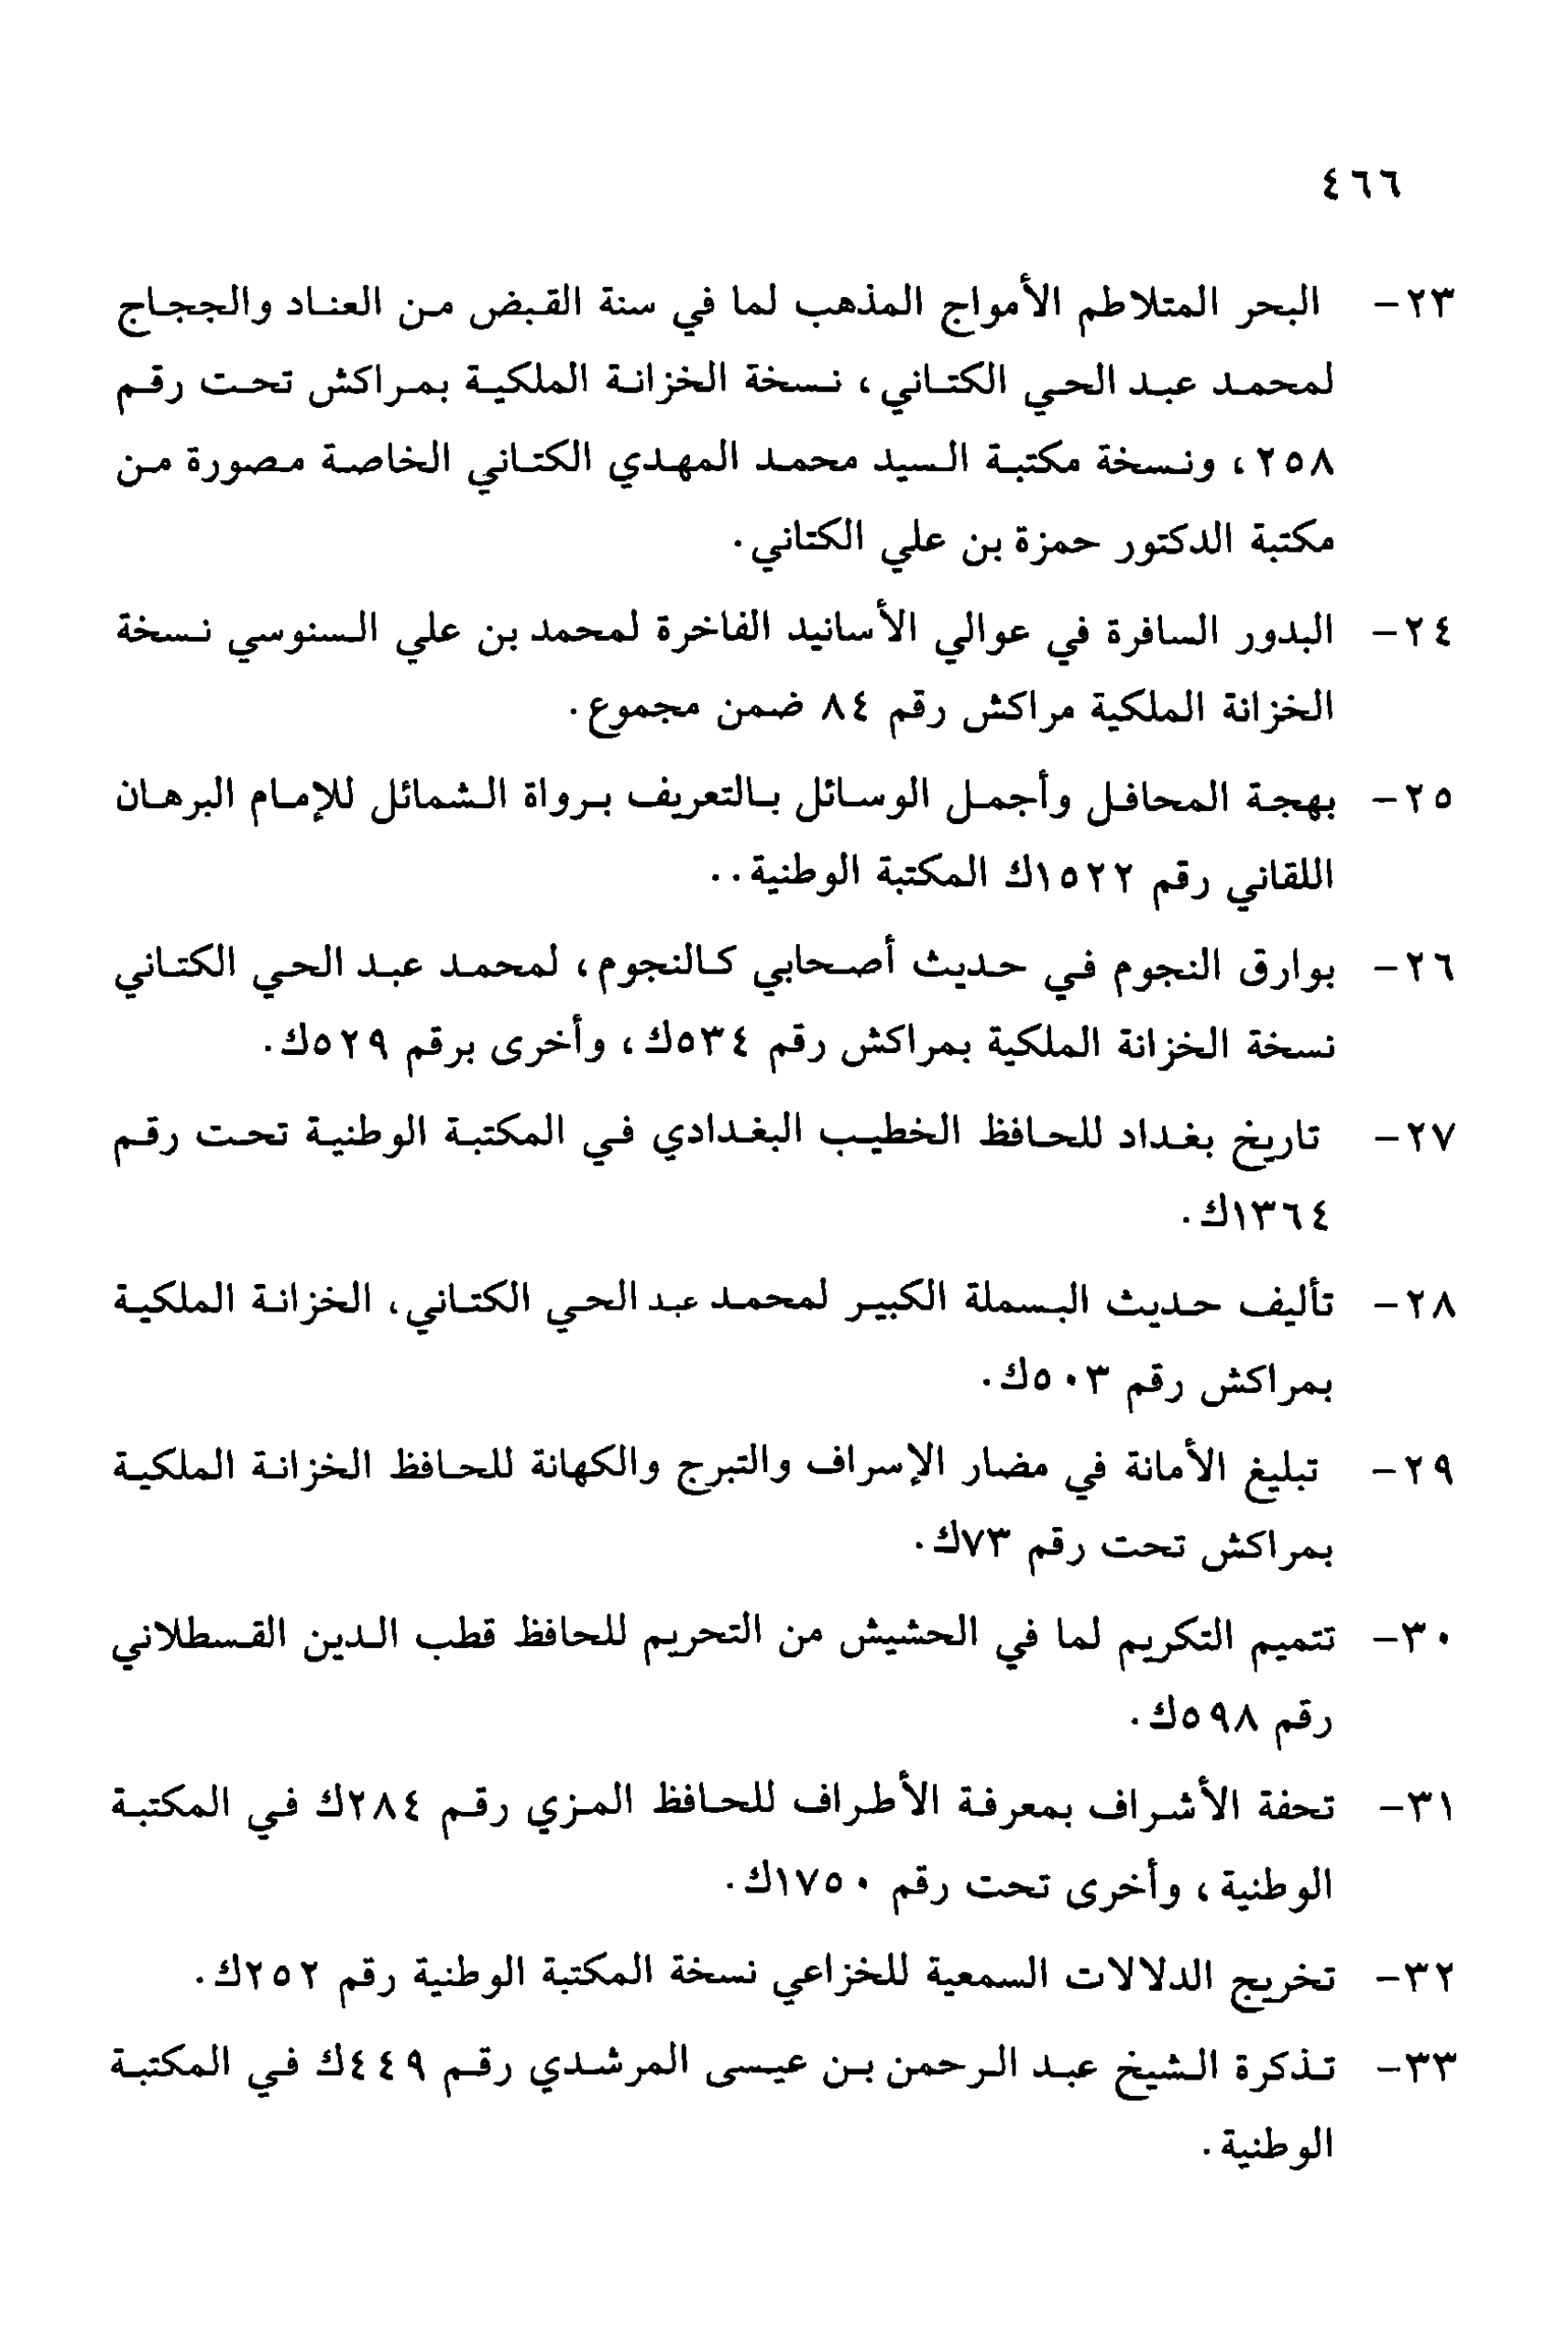 ٤٦٦
٢٣- البحر المتلاطم الأمواج المذهب لما في سنة القبض من العناد والججاج
لمحمد عبد الحي الكتاني، نسخة الخزانة الملكية بمراكش تحت رقم
٢٥٨، ونسخة مكتبة السيد محمد المهدي الكتاني الخاصة مصورة من
مكتبة الدكتور حمزة بن علي الكتاني.
٢٤- البدور السافرة في عوالي الأسانيد الفاخرة لمحمد بن علي السنوسي نسخة
الخزانة الملكية مراكش رقم ٨٤ ضمن مجموع.
٢٥- بهجة المحافل وأجمل الوسائل بالتعريف برواة الشمائل للإمام البرهان
اللقاني رقم ١٥٢٢ك المكتبة الوطنية..
٢٦- بوارق النجوم في حديث أصحابي كالنجوم، لمحمد عبد الحي الكتاني
نسخة الخزانة الملكية بمراكش رقم ٥٣٤ك، وأخرى برقم ٥٢٩ك.
٢٧- تاريخ بغداد للحافظ الخطيب البغدادي في المكتبة الوطنية تحت رقم
١٣٦٤ك.
٢٨- تأليف حديث البسملة الكبير لمحمد عبد الحي الكتاني، الخزانة الملكية
بمراكش رقم ٥٠٣ك.
٢٩- تبليغ الأمانة في مضار الإسراف والتبرج والكهانة للحافظ الخزانة الملكية
بمراكش تحت رقم ٧٣ك.
٣٠- تتميم التكريم لما في الحشيش من التحريم للحافظ قطب الدين القسطلاني
رقم ٥٩٨ك.
٣١- تحفة الأشراف بمعرفة الأطراف للحافظ المزي رقم ٢٨٤ك في المكتبة
الوطنية، وأخرى تحت رقم ١٧٥٠ك.
٣٢- تخريج الدلالات السمعية للخزاعي نسخة المكتبة الوطنية رقم ٢٥٢ك.
٣٣- تذكرة الشيخ عبد الرحمن بن عيسى المرشدي رقم ٤٤٩ك في المكتبة
الوطنية.